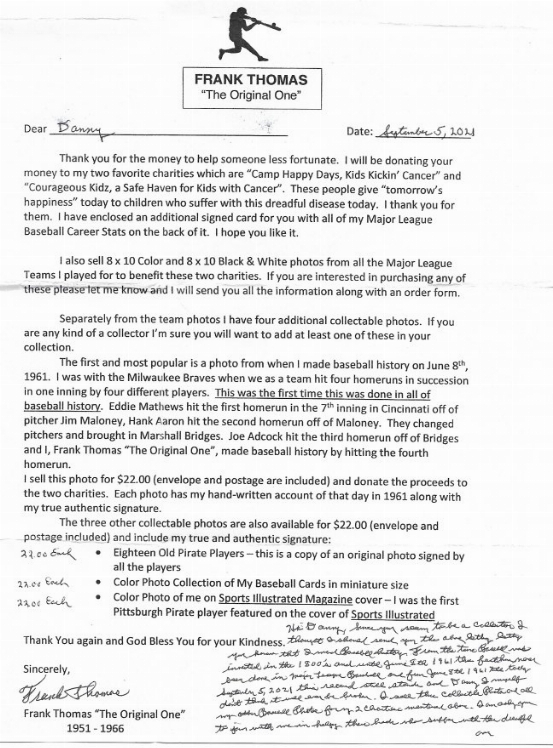 FRANK THOMAS
"The Original One"
Dear Danny Date: September 5, 2021
Thank you for the money to help someone less fortunate. I will be donating your
money to my two favorite charities which are "Camp Happy Days, Kids Kickin' Cancer" and
"Courageous Kidz, a Safe Haven for Kids with Cancer". These people give "tomorrow's
happiness" today to children who suffer with this dreadful disease today. I thank you for
them. I have enclosed an additional signed card for you with all of my Major League
Baseball Career Stats on the back of it. I hope you like it.
I also sell 8 x 10 Color and 8 x 10 Black & White photos from all the Major League
Teams I played for to benefit these two charities. If you are interested in purchasing any of
these please let me know and I will send you all the information along with an order form.
Separately from the team photos I have four additional collectable photos. If you
are any kind of a collector I'm sure you will want to add at least one of these in your
collection.
The first and most popular is a photo from when I made baseball history on June 8th,
1961. I was with the Milwaukee Braves when we as a team hit four homeruns in succession
in one inning by four different players. This was the first time this was done in all of
baseball history. Eddie Mathews hit the first homerun in the 7th inning in Cincinnati off of
pitcher Jim Maloney, Hank Aaron hit the second homerun off of Maloney. They changed
pitchers and brought in Marshall Bridges. Joe Adcock hit the third homerun off of Bridges
and I, Frank Thomas "The Original One", made baseball history by hitting the fourth
homerun.
I sell this photo for $22.00 (envelope and postage are included) and donate the proceeds to
the two charities. Each photo has my hand-written account of that day in 1961 along with
my true authentic signature.
The three other collectable photos are also available for $22.00 (envelope and
postage included) and include my true and authentic signature:
22.00 Each • Eighteen Old Pirate Players – this is a copy of an original photo signed by
all the players
22.00 Each • Color Photo Collection of My Baseball Cards in miniature size
22.00 Each • Color Photo of me on Sports Illustrated Magazine cover – I was the first
Pittsburgh Pirate player featured on the cover of Sports Illustrated
Hi Danny, Since you seem to be a Collector I
Thank You again and God Bless You for your Kindness. thought I should send you the above letter
you know that I made Baseball history. From the time Baseball was
invented in the 1800's and until June 8th 1961 this
been done in Major League Baseball and from June 8th 1961
September 5, 2021 this record still stands and Danny I myself
Sincerely,
don't think it will ever be broken. I sell this Collectable Photo and all
my other Baseball Photos for my 2 Charities mentioned above.
Frank Thomas
to join with me in helping these kids who suffer with the dreadful
Frank Thomas "The Original One"
1951 - 1966